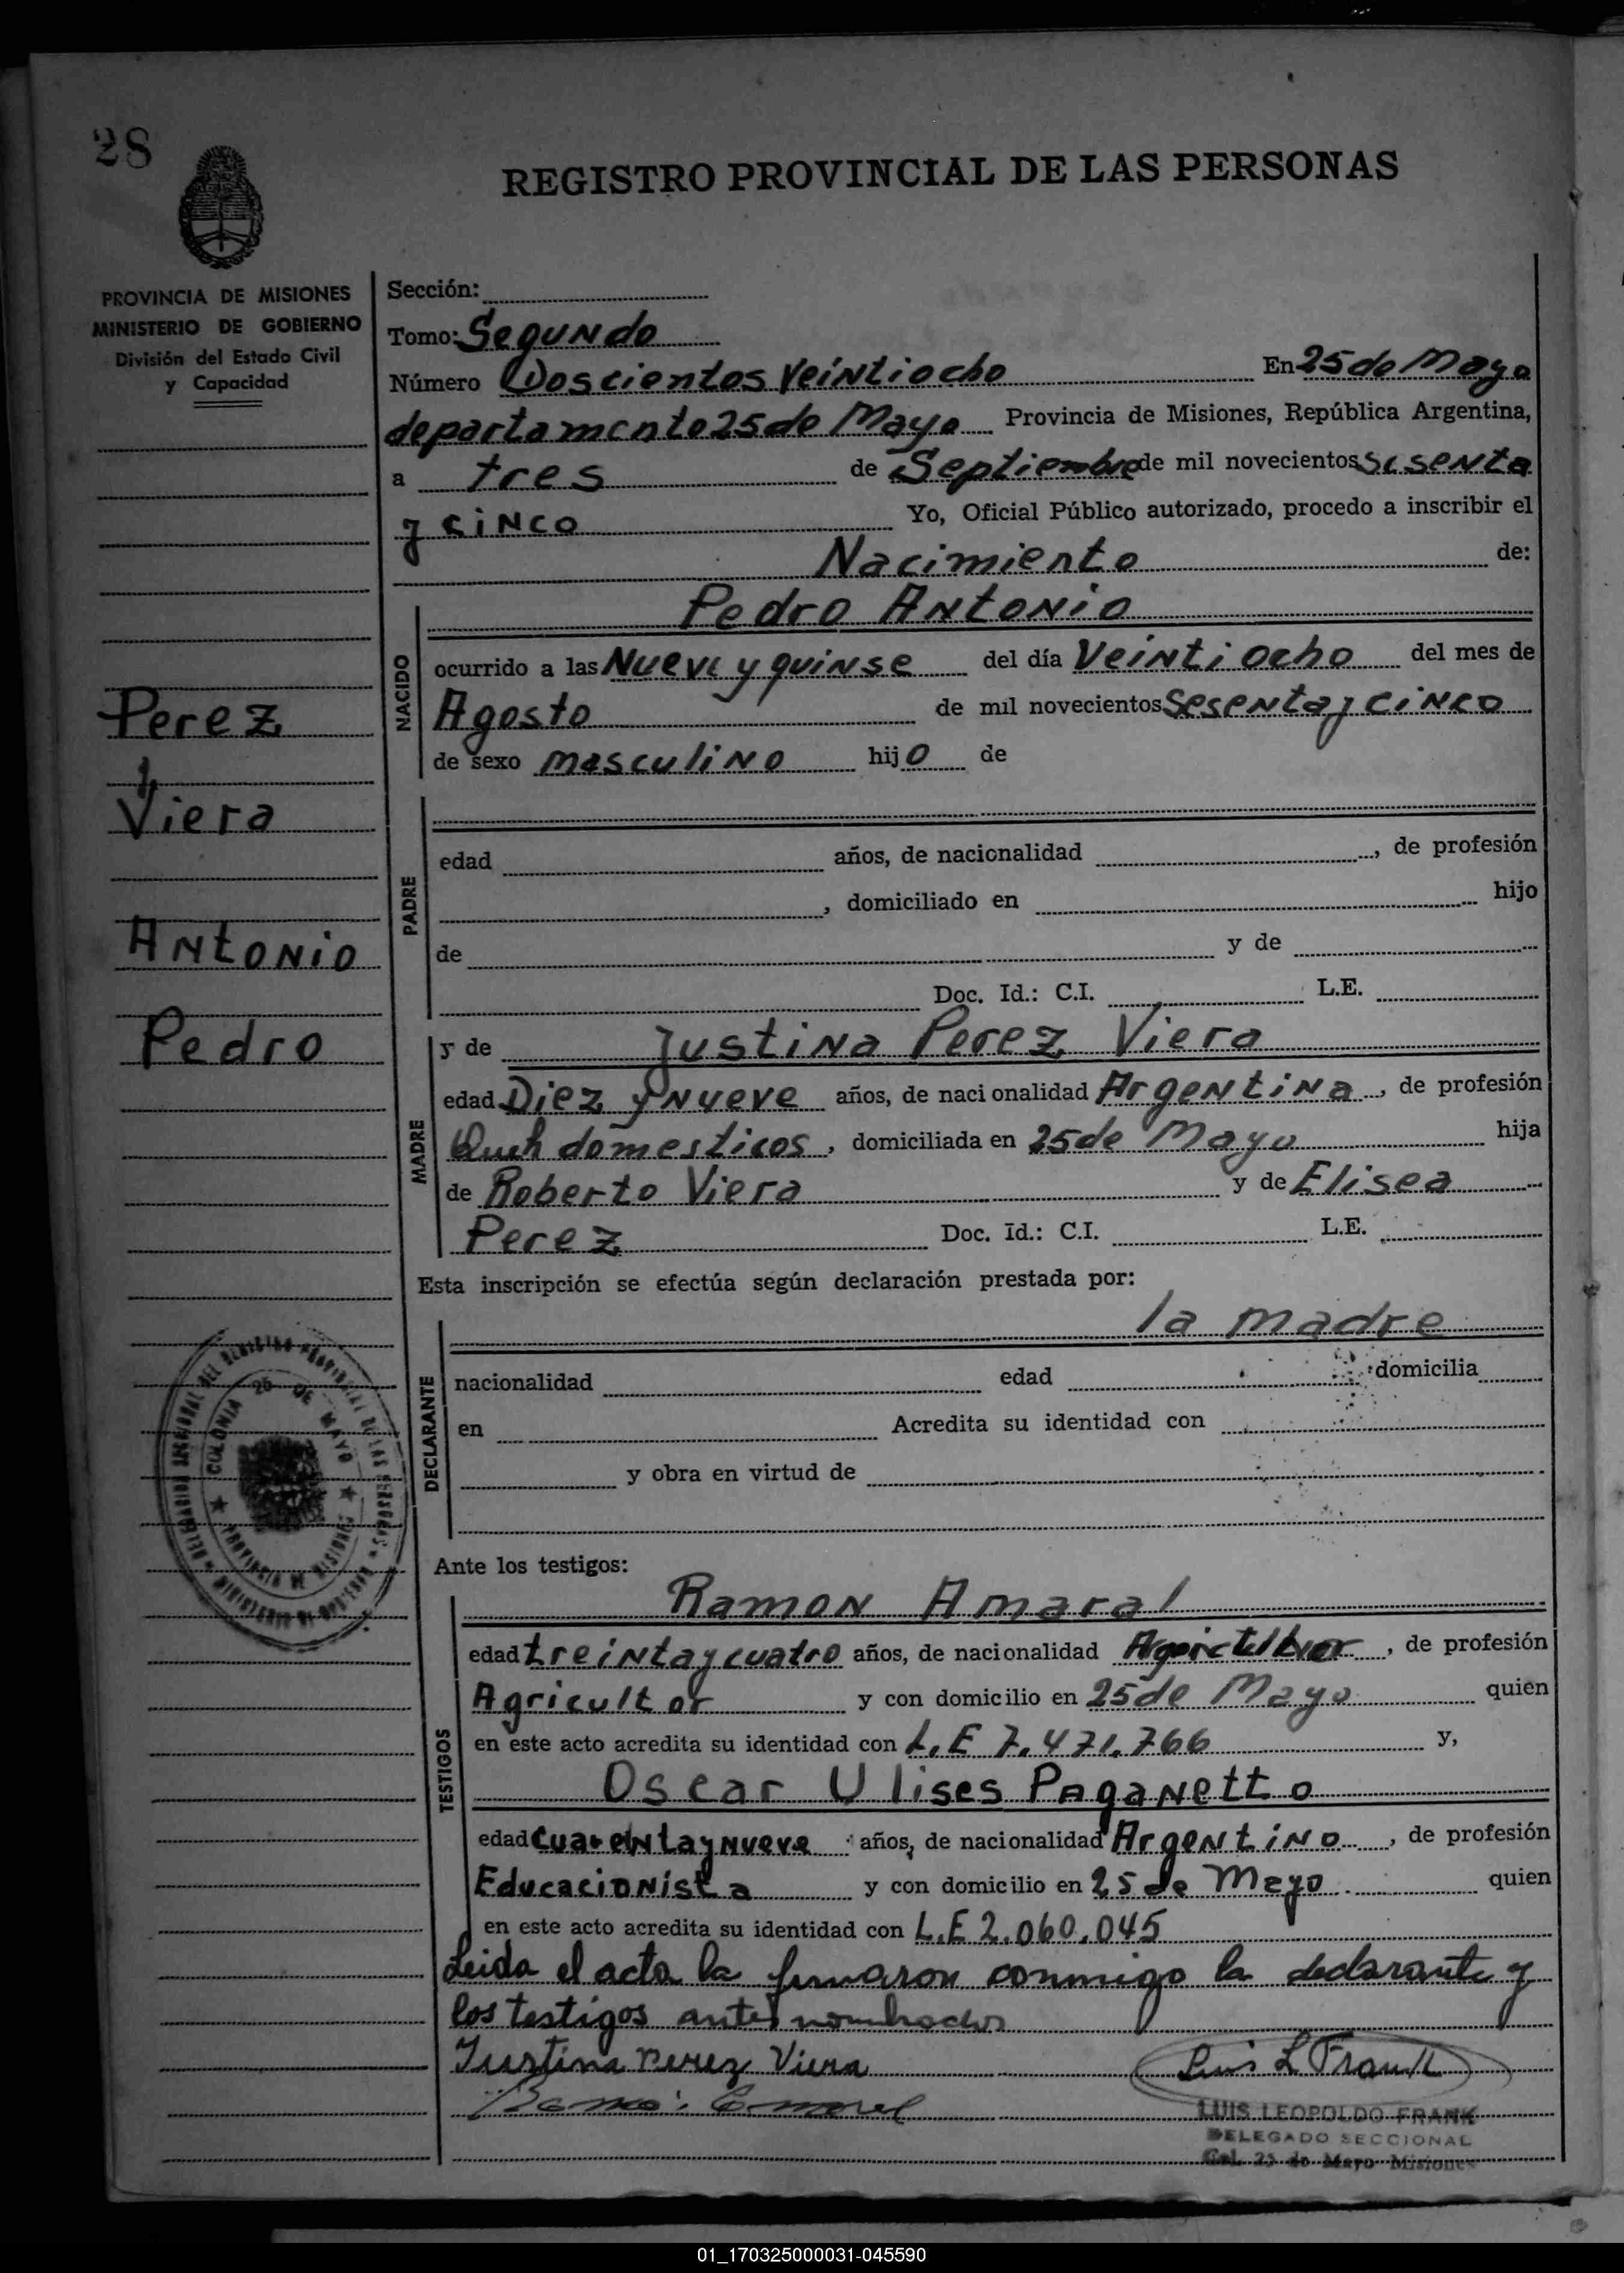 28
REGISTRO PROVINCIAL DE LAS PERSONAS
PROVINCIA DE MISIONES
MINISTERIO DE GOBIERNO
División del Estado Civil
y Capacidad
Perez
y
Viera
Antonio
Pedro
Sección:
Tomo: Segundo
Número Doscientos Veintiocho En 25 de Mayo
departamento 25 de Mayo Provincia de Misiones, República Argentina,
a tres de Septiembre de mil novecientos sesenta
y cinco Yo, Oficial Público autorizado, procedo a inscribir el
Nacimiento de:
Pedro Antonio
NACIDO
ocurrido a las Nueve y quinse del día Veinti ocho del mes de
Agosto de mil novecientos Sesenta y cinco
de sexo masculino hijo de
PADRE
edad años, de nacionalidad , de profesión
, domiciliado en hijo
de y de
Doc. Id.: C.I. L.E.
MADRE
y de Justina Perez Viera
edad Diez y Nueve años, de nacionalidad Argentina, de profesión
Queh domesticos, domiciliada en 25 de Mayo hija
de Roberto Viera y de Elisea
Perez Doc. Id.: C.I. L.E.
Esta inscripción se efectúa según declaración prestada por:
la madre
DECLARANTE
nacionalidad edad domicilia
en Acredita su identidad con
y obra en virtud de
COLONIA 25 DE MAYO
PROVINCIA DE MISIONES
Ante los testigos:
TESTIGOS
Ramon Amaral
edad treinta y cuatro años, de nacionalidad , de profesión
Agricultor y con domicilio en 25 de Mayo quien
en este acto acredita su identidad con L.E 7.471.766 y,
Oscar Ulises Paganetto
edad Cuarenta y nueve años, de nacionalidad Argentino, de profesión
Educacionista y con domicilio en 25 de Mayo quien
en este acto acredita su identidad con L.E 2.060.045
Leida el acta la firmaron conmigo la declarante y
los testigos antes nombrados
Justina Perez Viera
Luis L Frank
LUIS LEOPOLDO FRANK
DELEGADO SECCIONAL
Col. 25 de Mayo Misiones
01_170325000031-045590